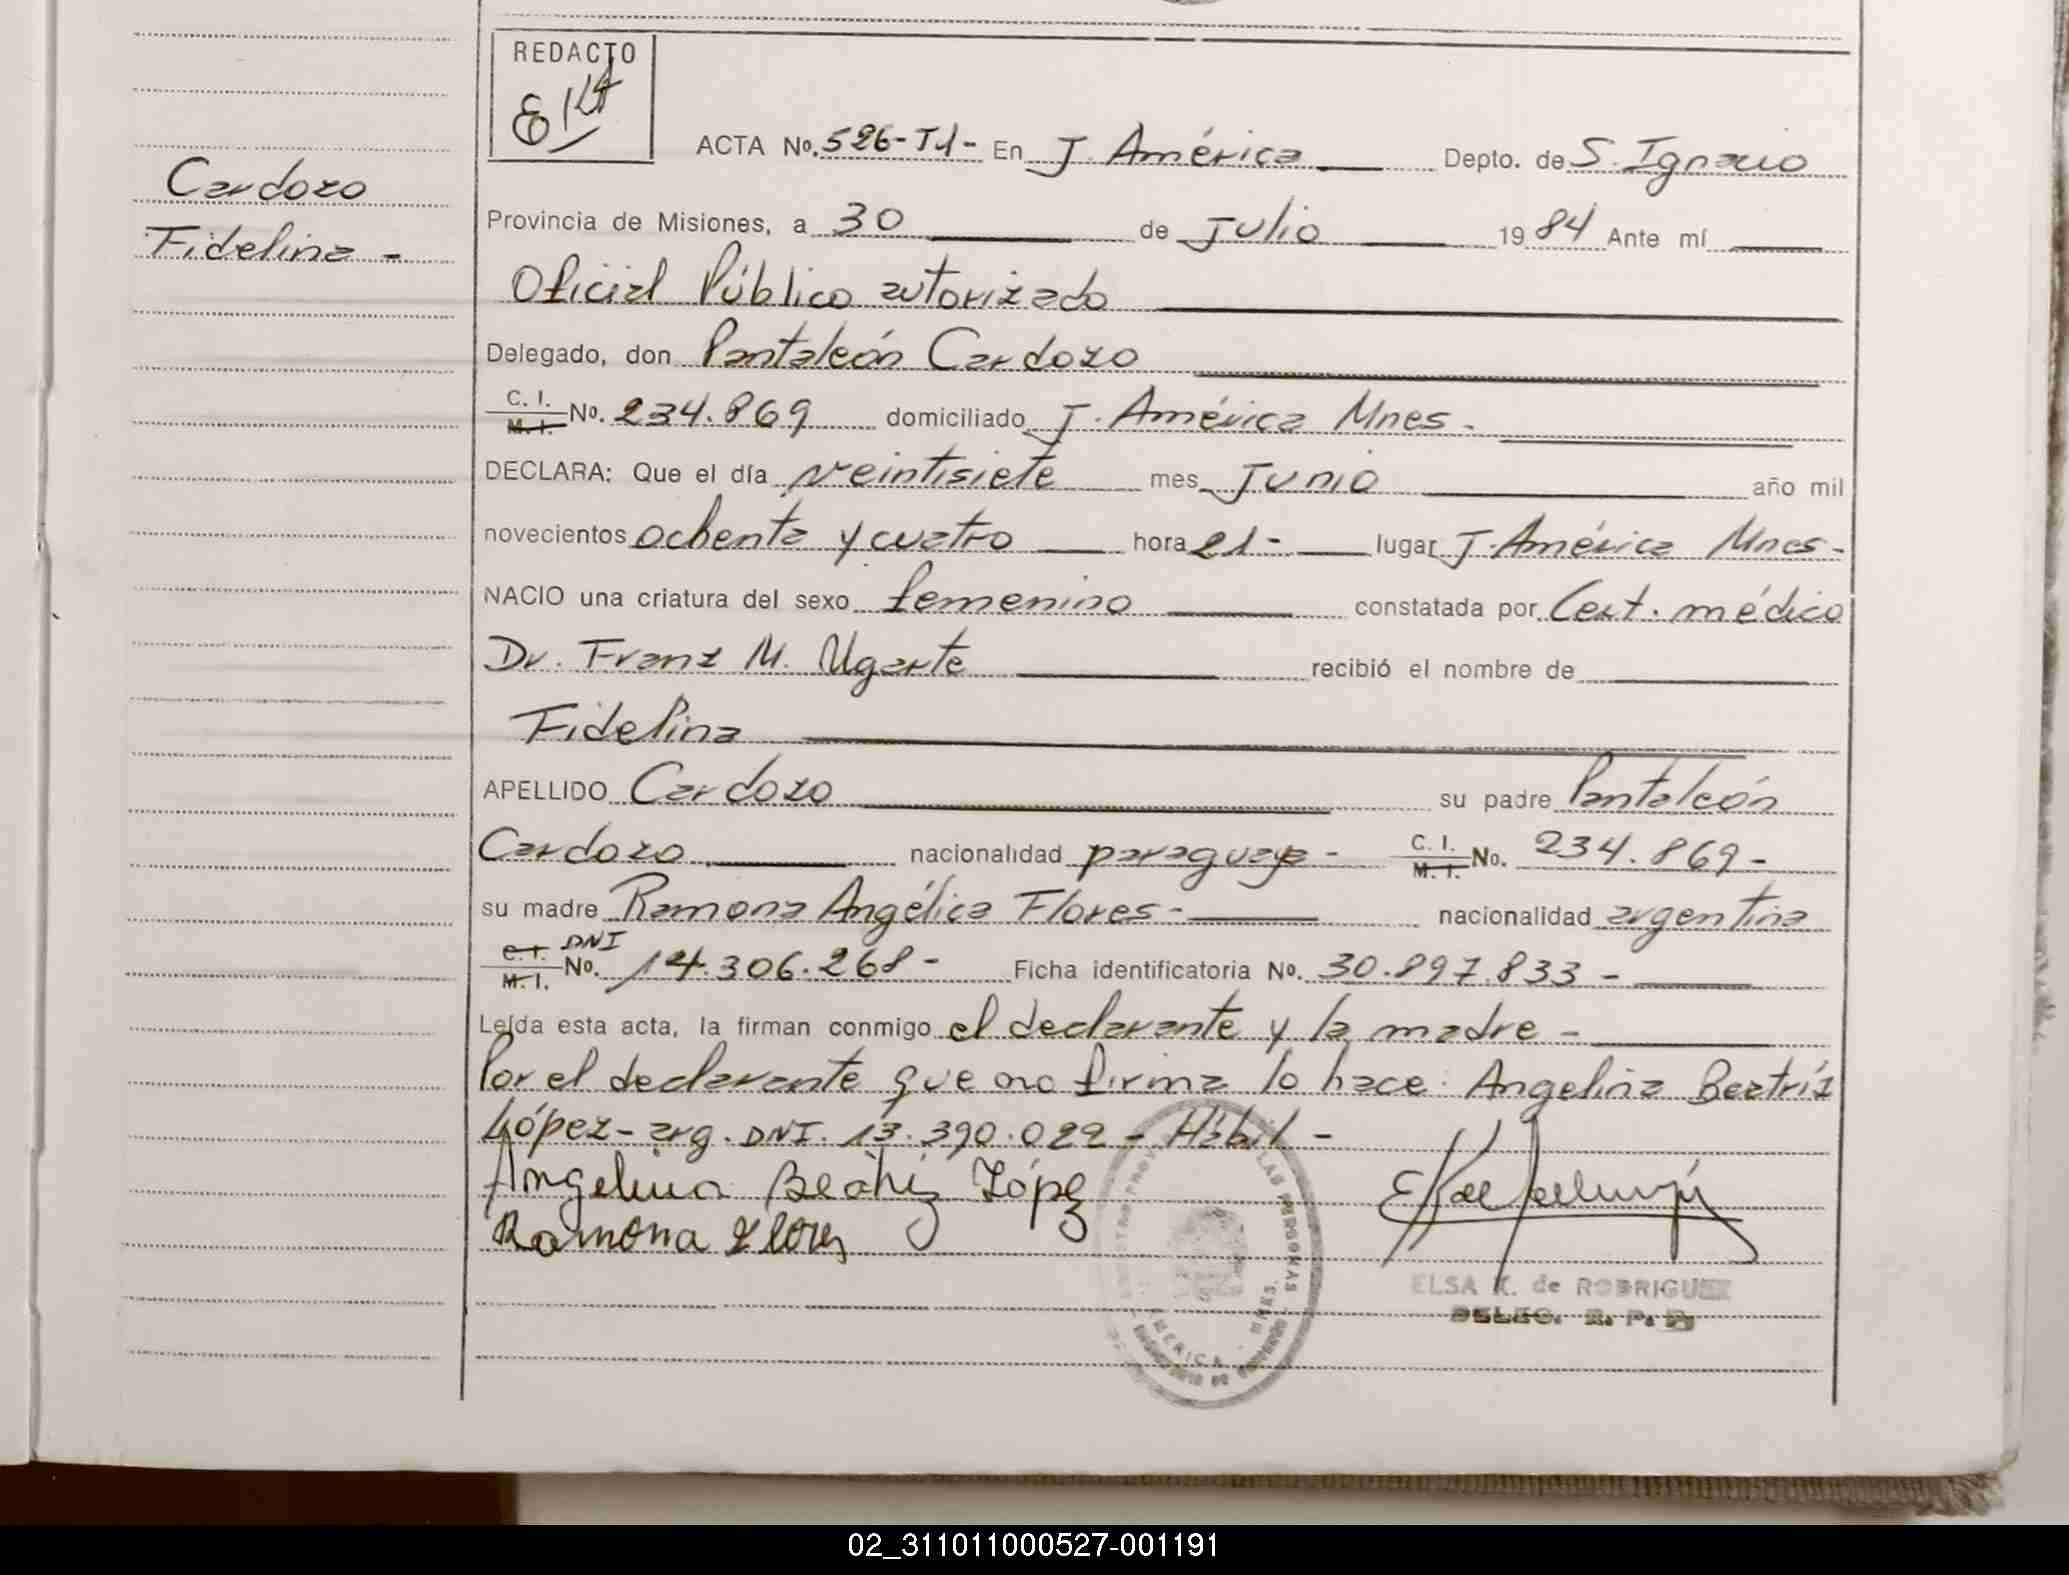 REDACTO
ACTA No. 526-TI- En J. América Depto. de S. Ignacio
Cardozo
Provincia de Misiones, a 30 de Julio 1984 Ante mí
Fidelina -
Oficial Público autorizado
Delegado, don Pantaleón Cardozo
C. I. M. I. No. 234.869 domiciliado J. América Mnes.
DECLARA: Que el día veintisiete mes Junio año mil
novecientos ochenta y cuatro hora 21- lugar J. América Mnes-
NACIO una criatura del sexo femenino constatada por Cert. médico
Dr. Franz M. Ugarte recibió el nombre de
Fidelina
APELLIDO Cardozo su padre Pantaleón
Cardozo nacionalidad paraguaya - C. I. M. I. No. 234.869-
su madre Ramona Angélica Flores- nacionalidad argentina
C. I. M. I. DNI No. 14.306.268- Ficha identificatoria No. 30.897.833 -
Leída esta acta, la firman conmigo el declarante y la madre -
Por el declarante que no firma lo hace: Angelina Beatríz
López- arg. DNI. 13.390.022 - Hábil -
Angelina Beatriz López
Ramona Flores
ELSA K. de RODRIGUEZ
DELEG. R. P. P.
02_311011000527-001191